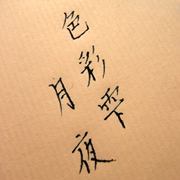 色彩雫
月夜